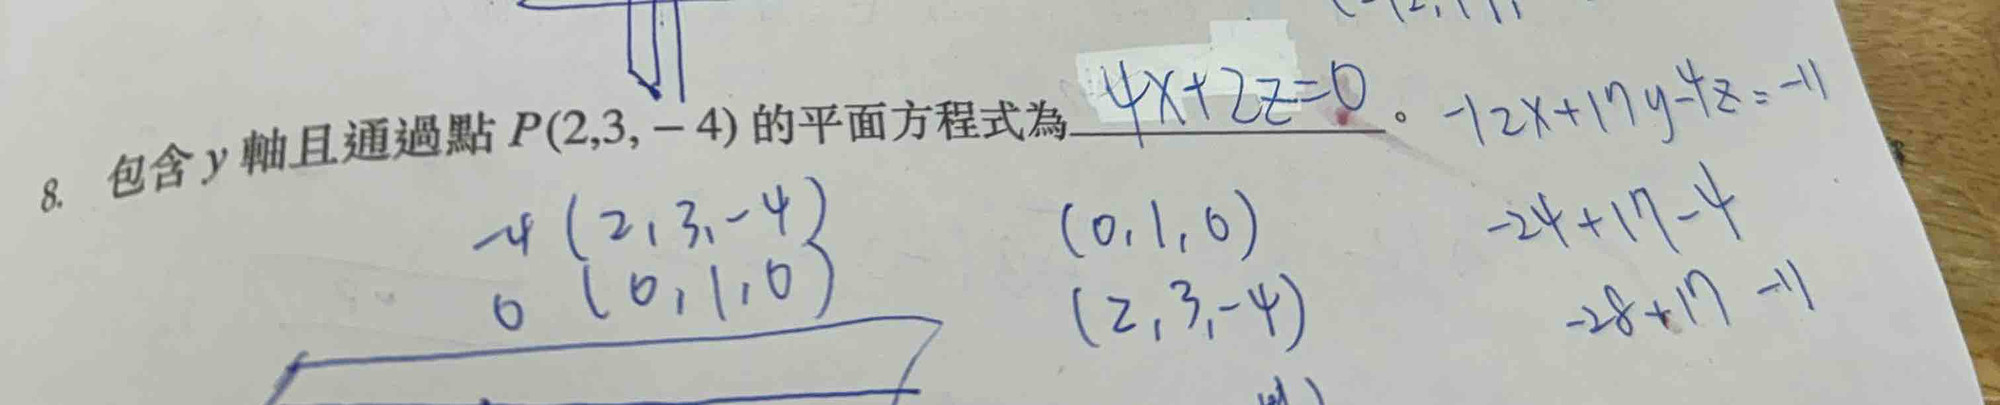 8. 包含 y 軸且通過點 P(2,3,−4) 的平面方程式為 4x+2z=0 。
-12x+17y-4z=-11
-4 (2,3,-4)
0 (0,1,0)
(0,1,0)
(2,3,-4)
-24+17-4
-28+17 -11